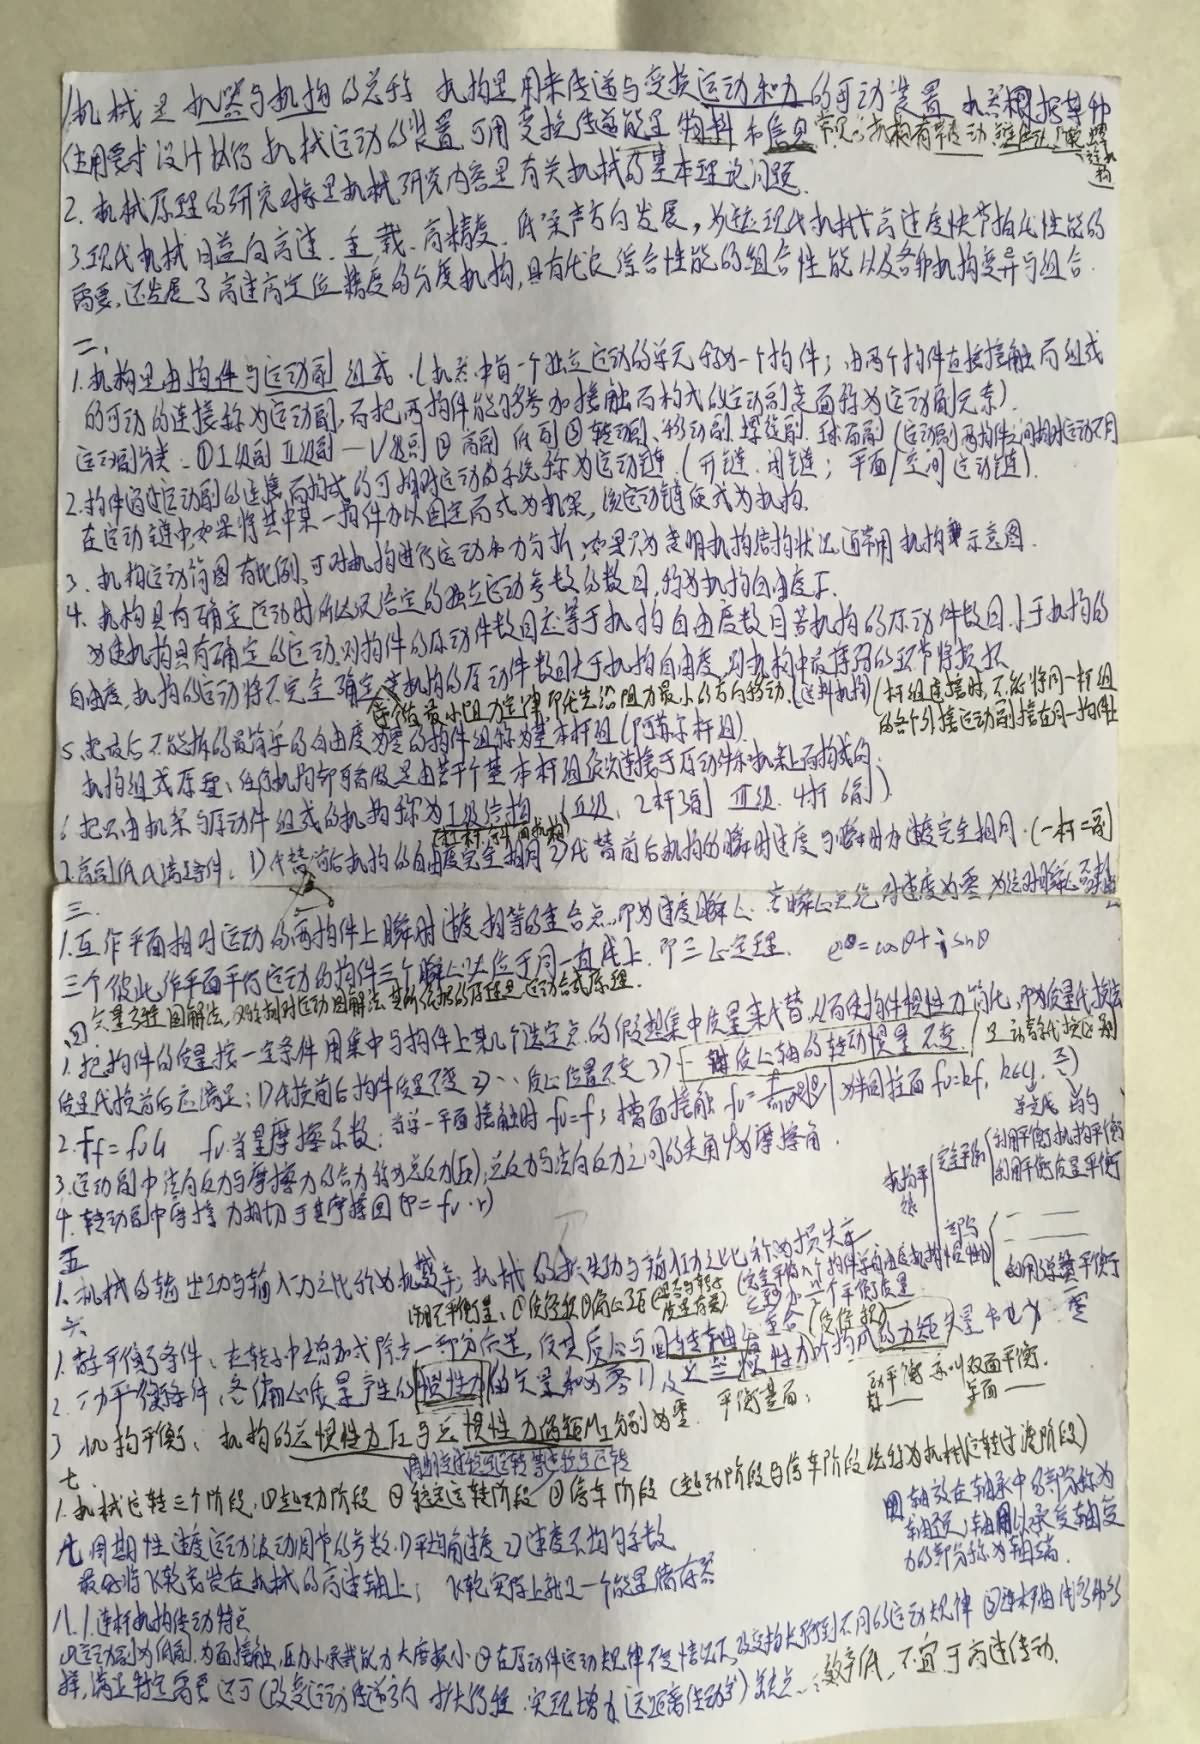 1.机械是机器与机构的总称 机构是用来传递与变换运动和力的可动装置 机器是根据某种
使用要求设计执行机械运动的装置 可用变换传递能量 物料和信息 常见的机构有
2.机械原理的研究对象是机械,研究内容是有关机械的基本理论问题.
3.现代机械日益向高速、重载、高精度、低噪声方向发展,为适应现代机械高速度快节拍优性能的
需要,还发展了高速高定位精度的分度机构,具有优良综合性能的组合性能以及各种机构变异与组合.
二、
1.机构是由构件与运动副组成.(机器中每一个独立运动的单元称为一个构件;由两个构件直接接触而组成
的可动的连接称为运动副,而把两构件能够参加接触而构成的运动副表面称为运动副元素).
运动副分类:①Ⅰ级副Ⅱ级副—Ⅴ级副②高副 低副③转动副、移动副.螺旋副.球面副(运动副两构件之间相对运动不同
2.构件通过运动副的连接而构成的可相对运动的系统称为运动链.(开链.闭链;平面/空间运动链).
在运动链中,如果将其中某一构件加以固定而成为机架,该运动链便成为机构.
3.机构运动简图有比例、可对机构进行运动和力分析,如果只为表明机构结构状况,通常用机构示意图.
4.机构具有确定运动时所必须给定的独立运动参数的数目,称为机构自由度F.
为使机构具有确定的运动,则构件的原动件数目应等于机构自由度数目若机构的原动件数目小于机构的
自由度,机构的运动将不完全确定,若机构的原动件数目大于机构自由度,则机构中最薄弱的环节将损坏
遵循最小阻力定律,即优先沿阻力最小的方向移动.(送料机构)(杆组连接时,不能将同一杆组
的各个外接运动副接在同一构件上
5.把最后不能拆的最简单的自由度为零的构件组称为基本杆组(阿苏尔杆组).
机构组成原理:任何机构都可看做是由若干个基本杆组依次连接于原动件和机架上而构成的.
6.把只由机架与原动件组成的机构称为Ⅰ级结构.(Ⅱ级、2杆3副 Ⅲ级.4杆6副)
7.高副低代满足条件、1)代替前后机构的自由度完全相同2)代替前后机构的瞬时速度与瞬时加速度完全相同.(一杆二副)
三.
1.互作平面相对运动的两构件上瞬时速度相等的重合点,即为速度瞬心.若瞬心点绝对速度为零为绝对瞬心否则相对
三个彼此作平面平行运动的构件三个瞬心必位于同一直线上.即三心定理. e^iθ=cosθ+isinθ
矢量方程图解法,又称相对运动图解法,其所依据的原理是运动合成原理.
四
1.把构件的质量按一定条件用集中与构件上某几个选定点的假想集中质量来代替,从而使构件惯性力简化,即为质量代换法
质量代换前后应满足:1)代换前后构件质量不变2)、、质心位置不变3)—对质心轴的转动惯量不变.
2.Ff=fvG fv当量摩擦系数;当单一平面接触时fv=f;槽面接触fv=f/sinθ 为半圆柱面fv=kf,
3.运动副中法向反力与摩擦力的合力称为总反力(FR),总反力与法向反力之间的夹角φ为摩擦角.
4.转动副中摩擦力相切于其摩擦圆(ρ=fv·r)
机构平衡 完全平衡 利用平衡机构平衡
利用平衡质量平衡
部分
利用弹簧平衡
五
1.机械的输出功与输入功之比称为机械效率;机械的损失功与输入功之比称为损失率
六
1.静平衡条件:在转子中增加或除去一部分质量,使其质心与回转轴心重合(质径积)
2.动平衡条件:各偏心质量产生的惯性力的矢量和为零以及这些惯性力所构成的力矩矢量和也为零
平衡基面: 动平衡亦叫双面平衡.
3 机构平衡:机构的总惯性力FI与总惯性力偶矩MI分别为零.
七.
周期变速稳定运转 等速稳定运转
1.机械运转三个阶段.①起动阶段②稳定运转阶段③停车阶段(起动阶段与停车阶段统称为机械运转过渡阶段)
周期性速度运动波动调节的参数.1)平均角速度2)速度不均匀系数
最好将飞轮安装在机械的高速轴上; 飞轮实际上就是一个能量储存器
轴放在轴承中的部分称为
轴颈,轴用以承受轴受
力的部分称为轴端.
八.1.连杆机构传动特点
①运动副为低副,为面接触,压力小承载能力大磨损小②在原动件运动规律不变情况下,改变构件长得到不同的运动规律③连杆曲线多种多
样,满足特定需要 还可(改变运动传递方向 扩大行程.实现增力.远距离传动等)缺点:效率低,不宜于高速传动.